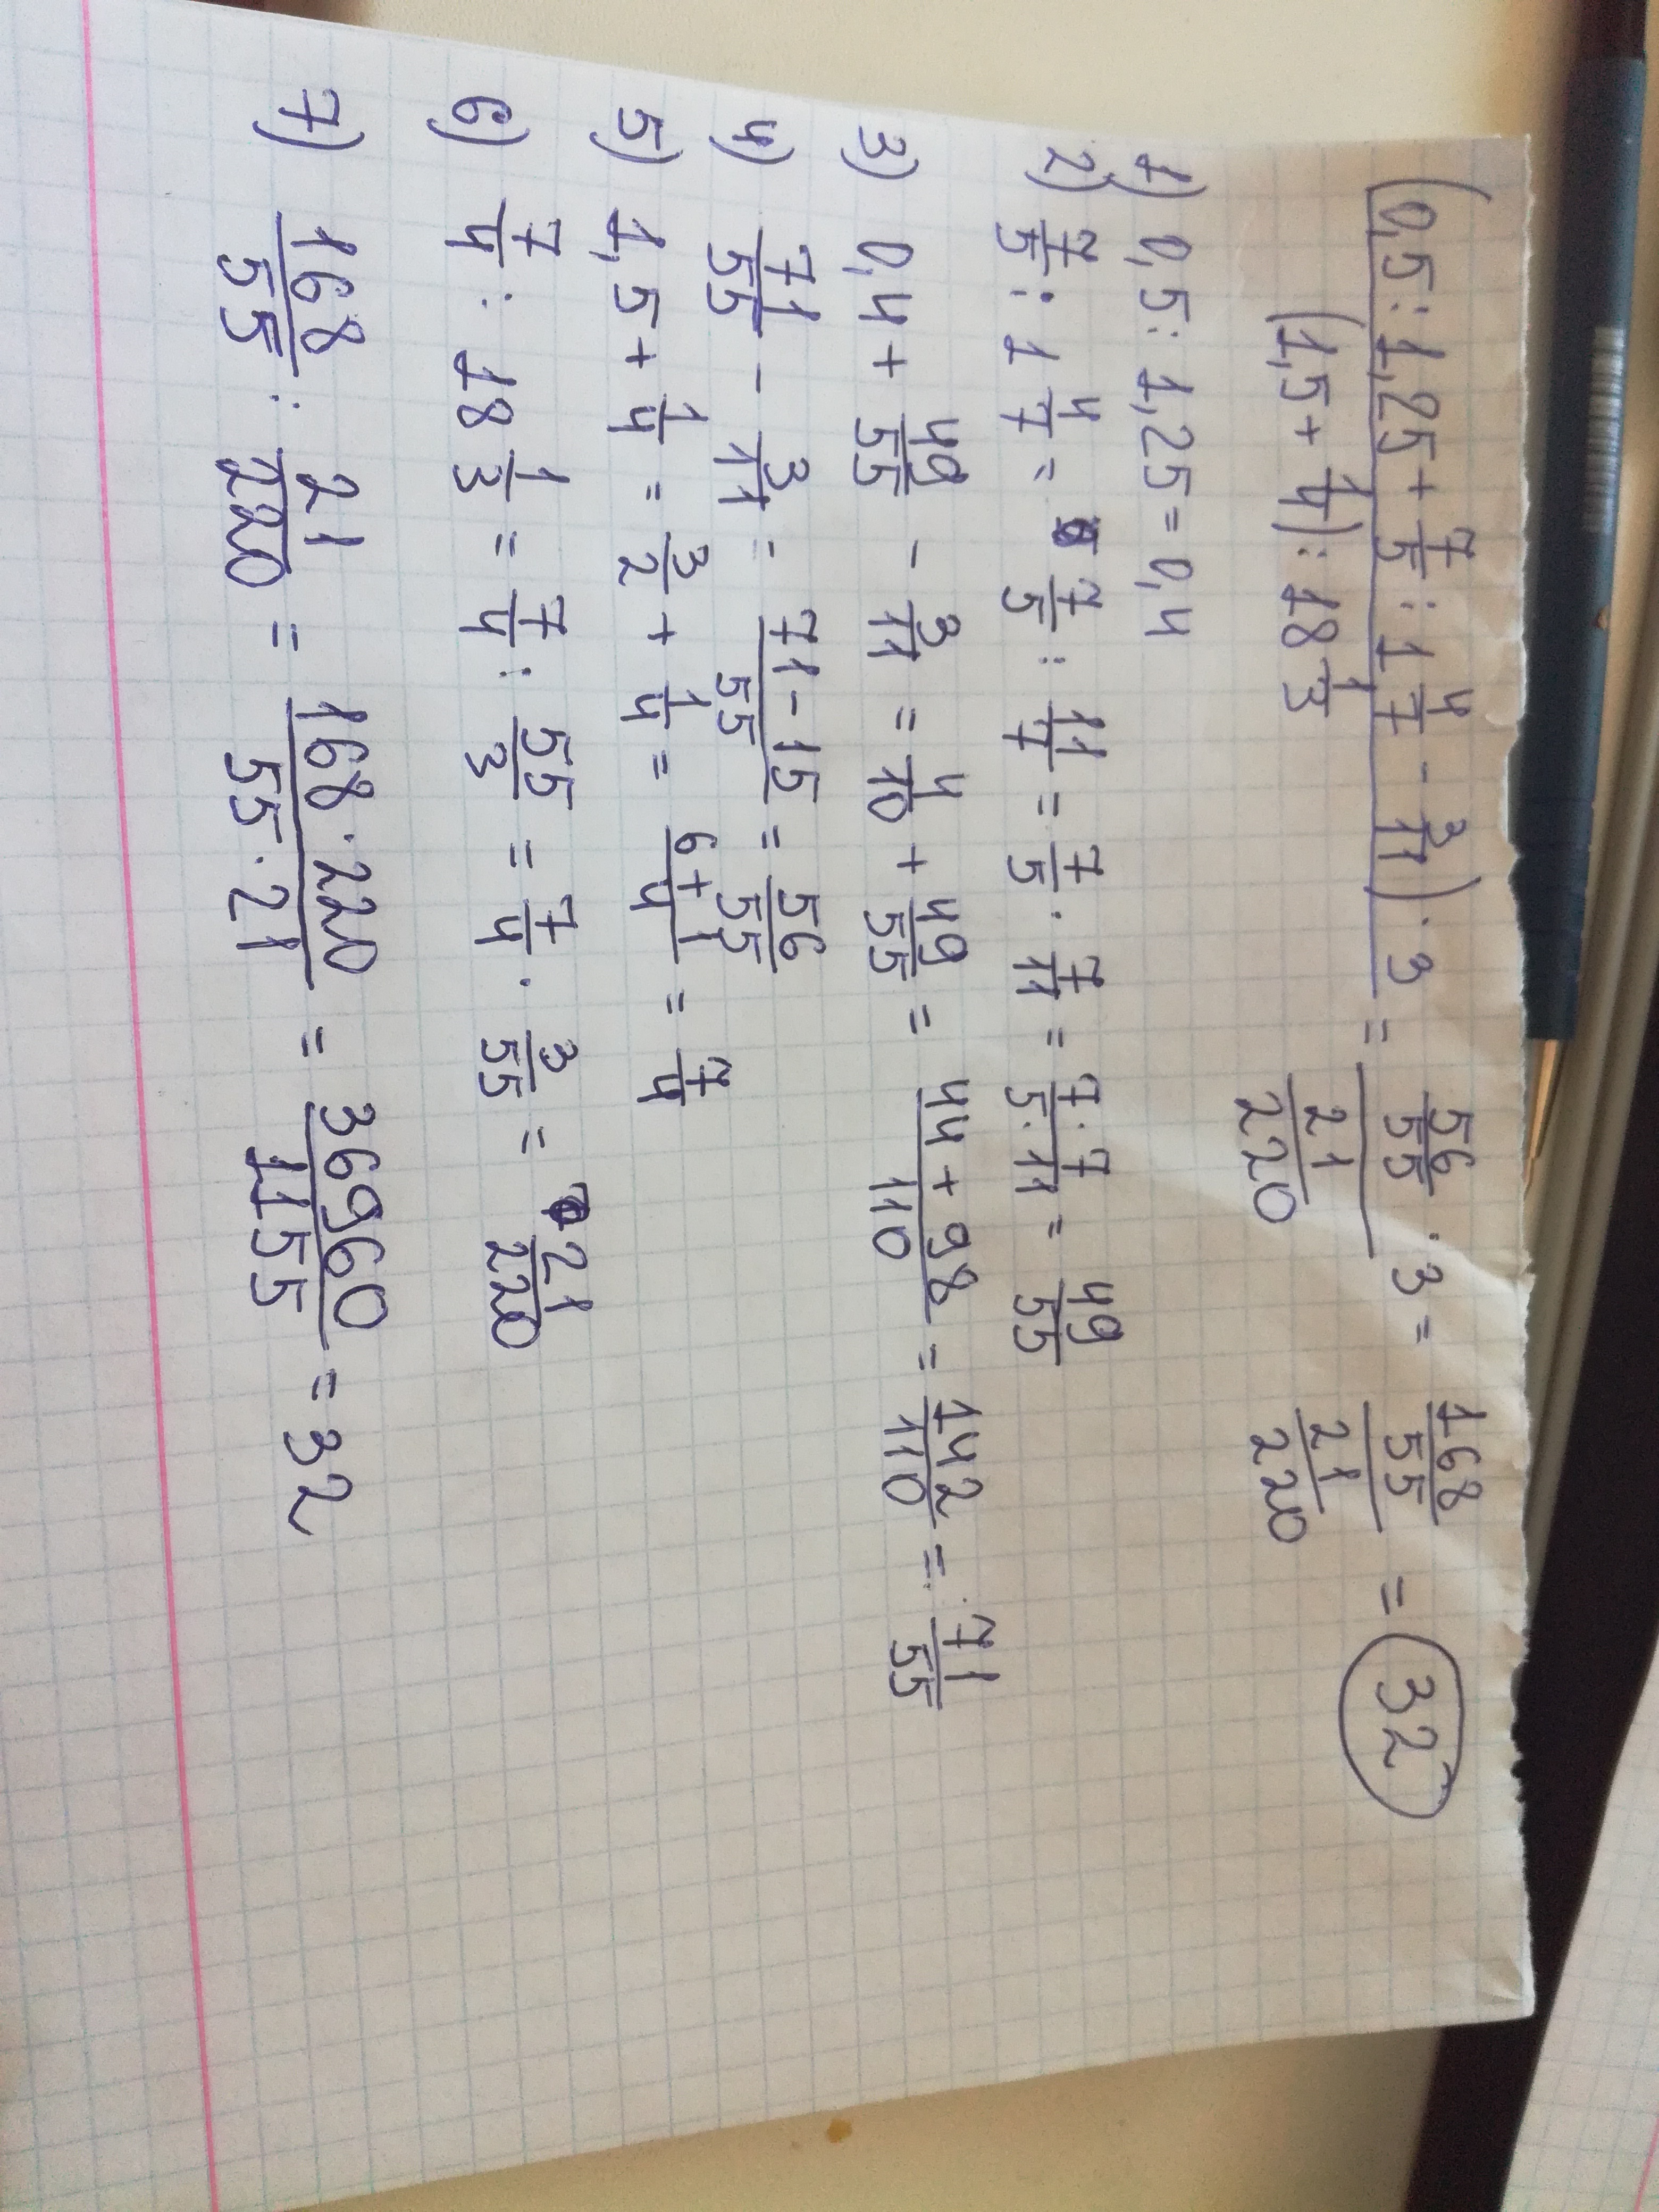 (0,5 : 1,25 + 7/5 : 1 4/7 - 3/11) · 3 / (1,5 + 1/4) : 18 1/3 = 56/55 · 3 / 21/220 = 168/55 / 21/220 = 32
1) 0,5 : 1,25 = 0,4
2) 7/5 : 1 4/7 = 7/5 : 11/7 = 7/5 · 7/11 = 7·7/5·11 = 49/55
3) 0,4 + 49/55 - 3/11 = 4/10 + 49/55 = 44+98/110 = 142/110 = 71/55
4) 71/55 - 3/11 = 71-15/55 = 56/55
5) 1,5 + 1/4 = 3/2 + 1/4 = 6+1/4 = 7/4
6) 7/4 : 18 1/3 = 7/4 : 55/3 = 7/4 · 3/55 = 21/220
7) 168/55 : 21/220 = 168·220/55·21 = 36960/1155 = 32